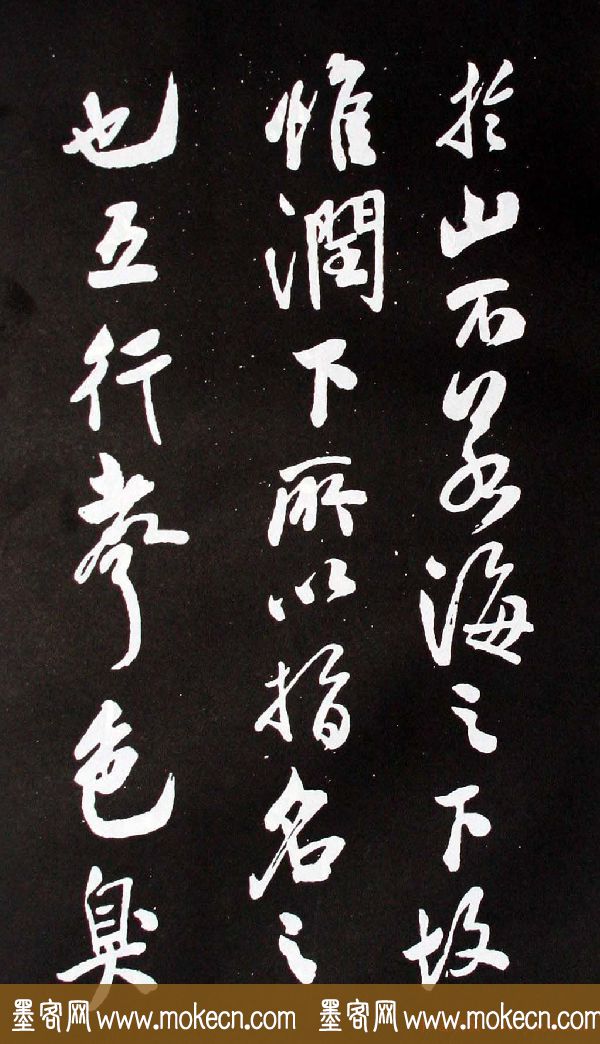 於山石若海之下故
惟潤下所以指名之
也五行色臭
墨客网 www.mokecn.com 墨客网 www.mokecn.com